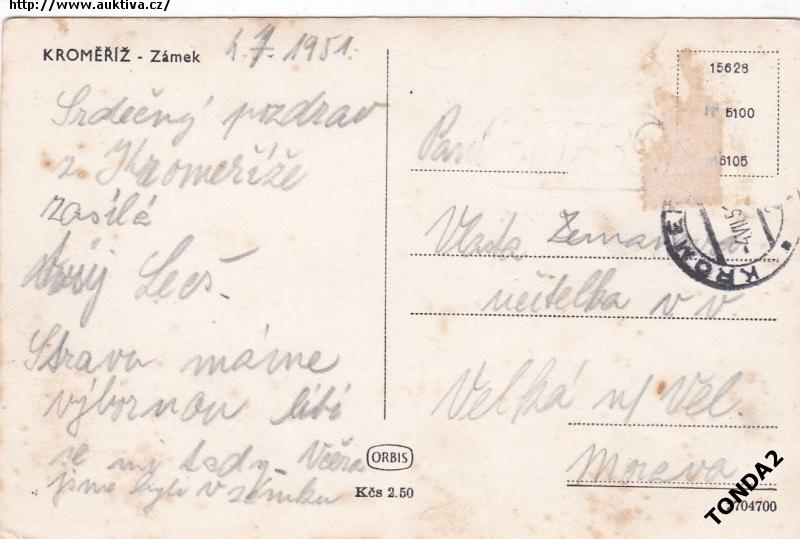 http://www.auktiva.cz/
KROMĚŘÍŽ - Zámek 4.7.1951.
Srdečný pozdrav
z Kroměříže
zasílá
Leoš.
Stravu máme
výbornou líbí
se mi tady. Včera
jsme byli v zámku
ORBIS
Kčs 2.50
15628
5100
6105
Paní
Vlasta Zemanová
učitelka v v.
Velká n/ Vel.
Morava
KROMĚ
4.VII.5
704700
TONDA2